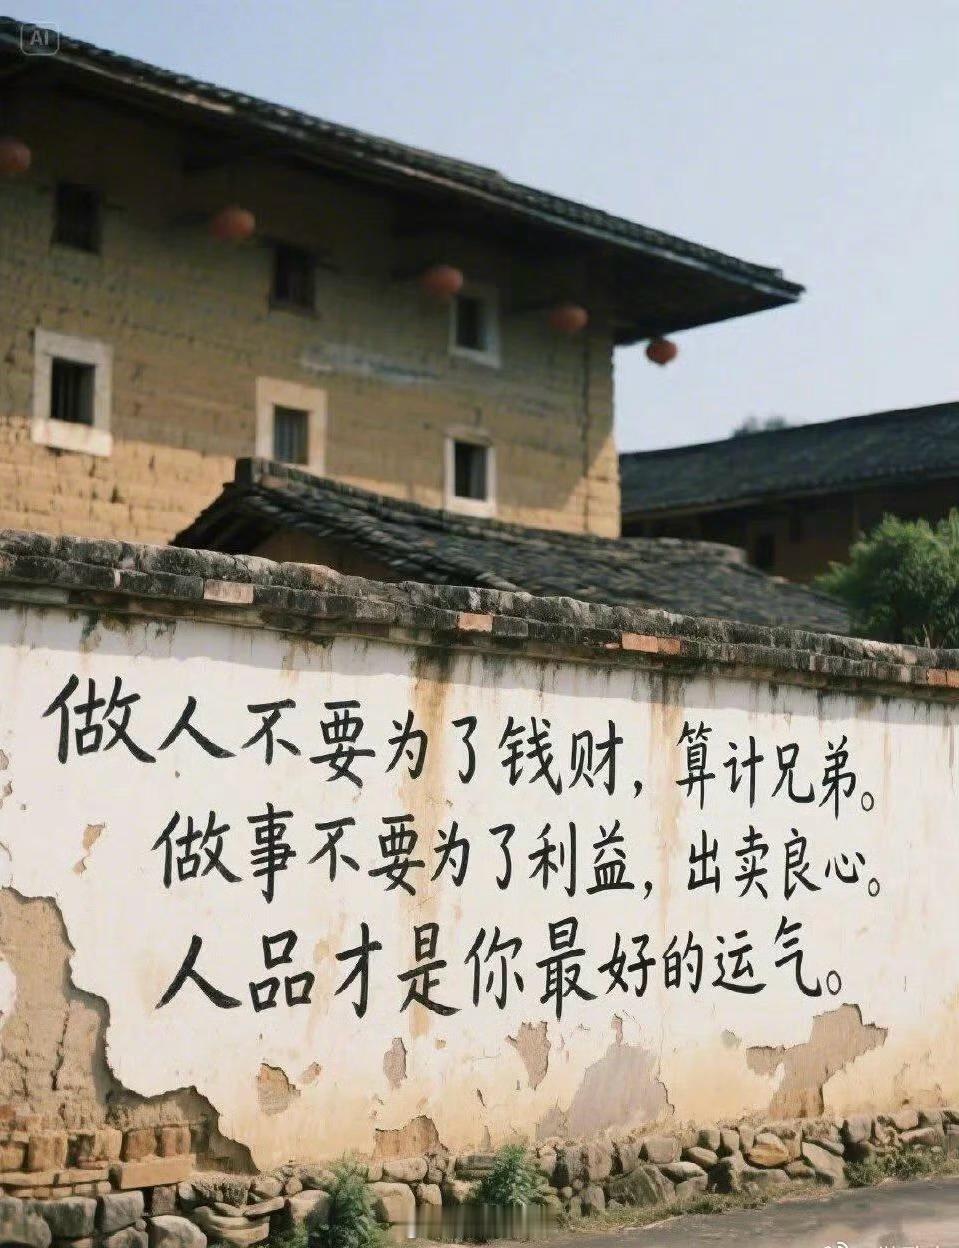 AI
做人不要为了钱财，算计兄弟。
做事不要为了利益，出卖良心。
人品才是你最好的运气。